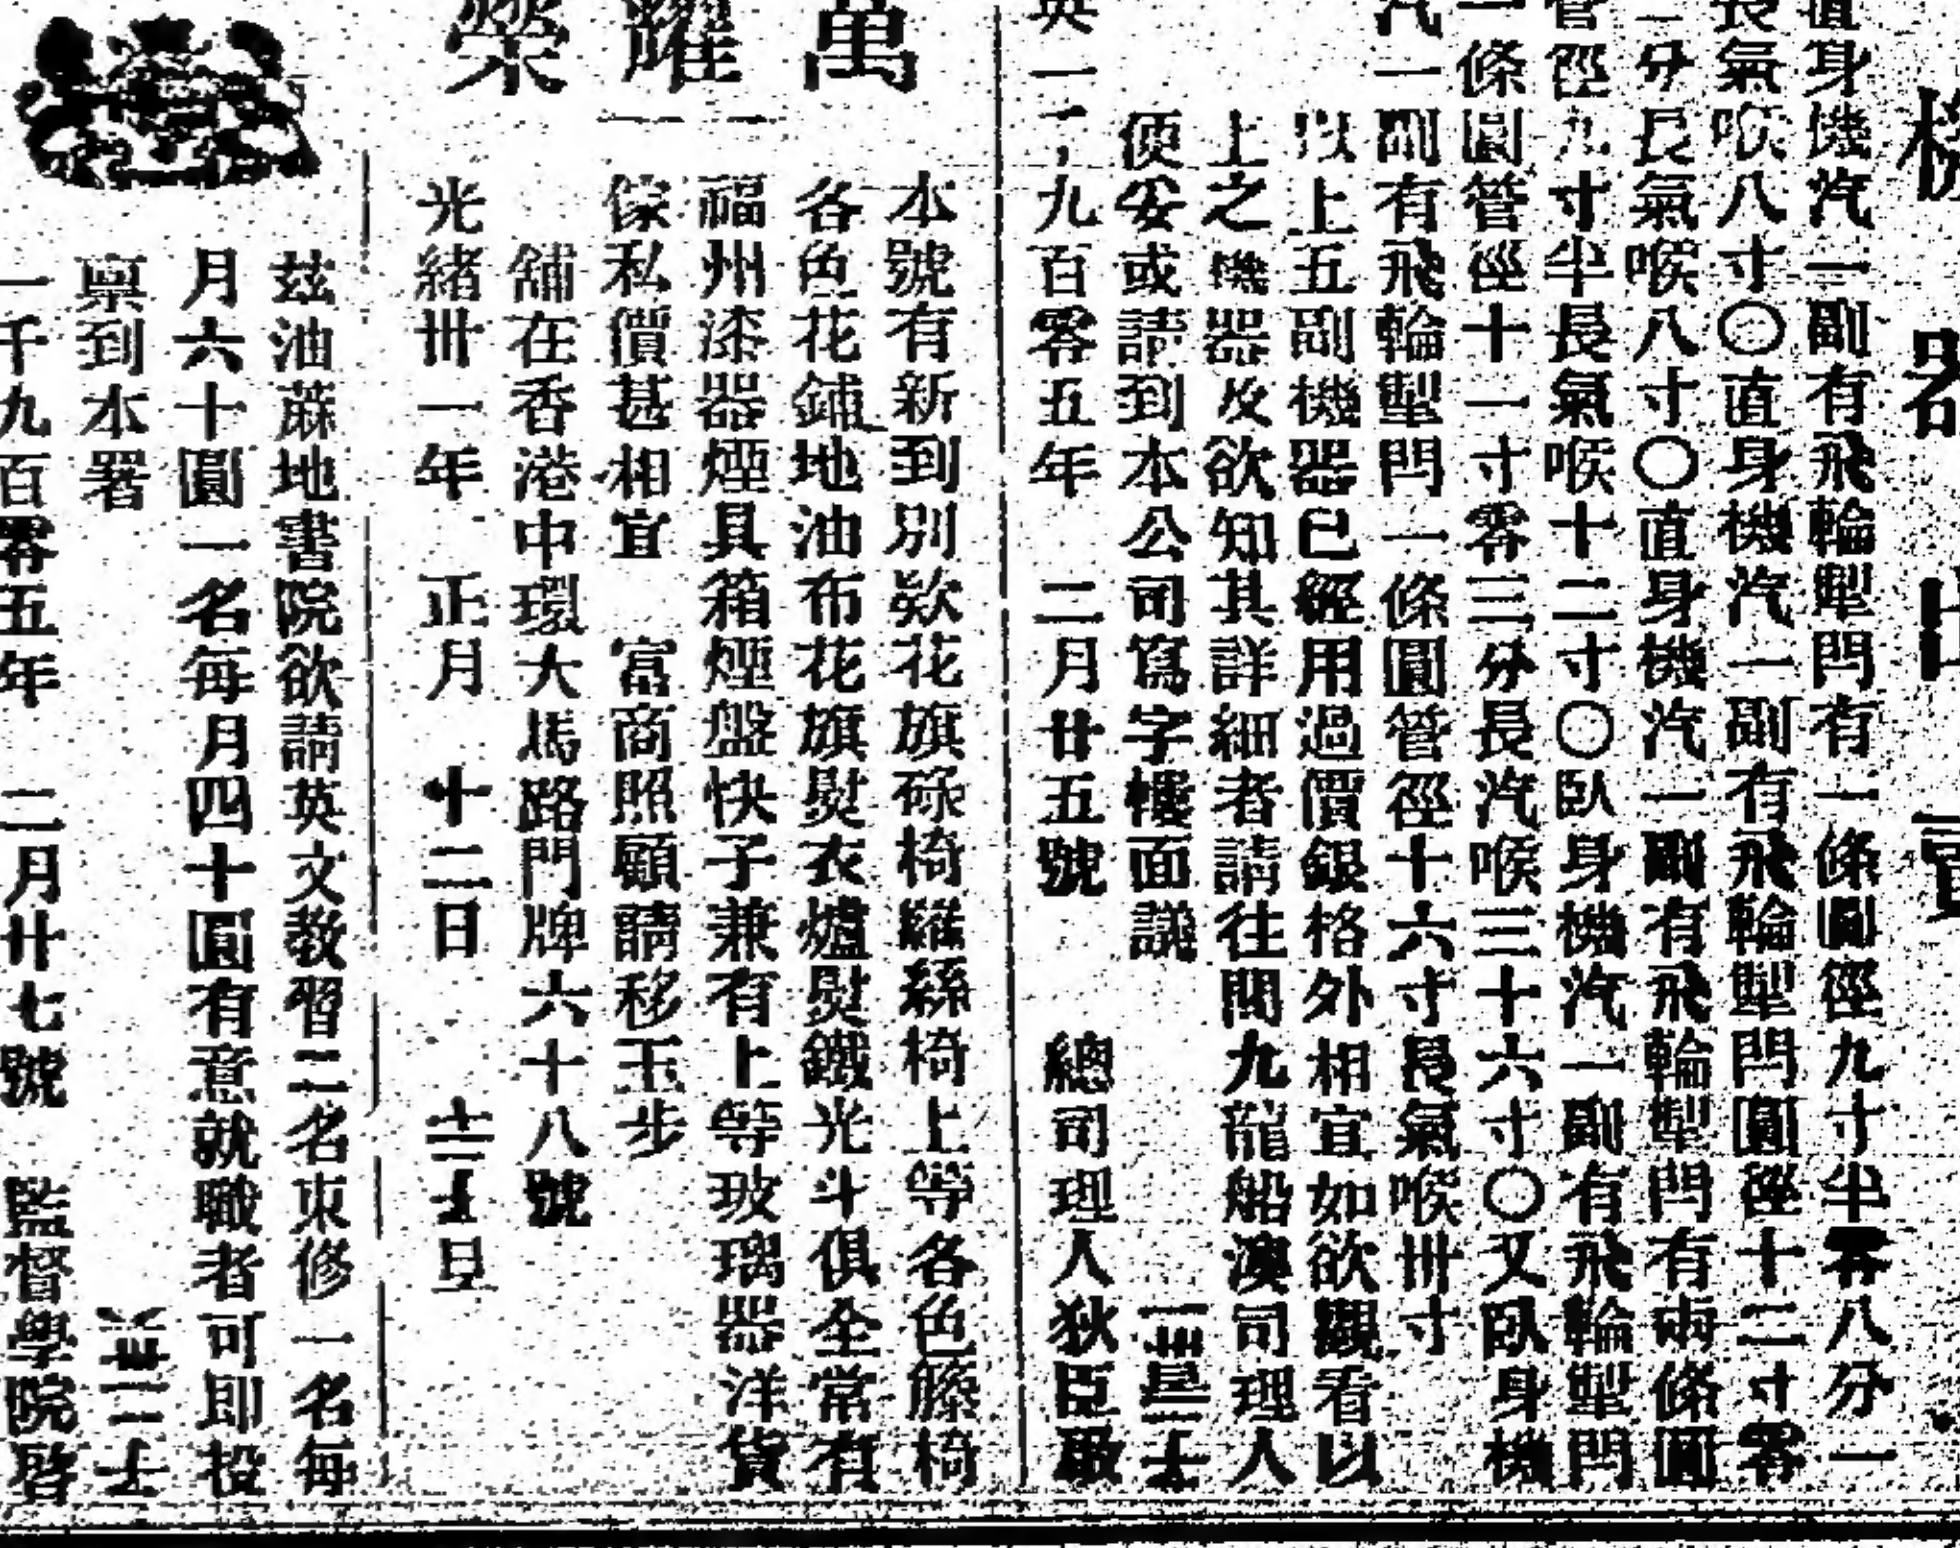 機器出賣
直身機汽一副有飛輪掣門有一條圓徑九寸半零八分一
長氣喉八寸〇直身機汽一副有飛輪掣門圓徑十二寸零
二分長氣喉八寸〇直身機汽一副有飛輪掣門有兩條圓
管徑九寸半長氣喉十二寸〇臥身機汽一副有飛輪掣門
一條圓管徑十一寸零三分長汽喉三十六寸〇又臥身機
汽一副有飛輪掣門一條圓管徑十六寸長氣喉卅寸
以上五副機器已經用過價銀格外相宜如欲觀看以
上之機器及欲知其詳細者請往問九龍船澳司理人
便妥或請到本公司寫字樓面議
英一千九百零五年 二月廿五號 總司理人狄臣啟
萬耀榮
本號有新到別欵花旗碌椅羅絲椅上等各色籐椅
各色花鋪地油布花旗熨衣爐熨鐵光斗俱全常有
福州漆器煙具箱煙盤快子兼有上等玻璃器洋貨
傢私價甚相宜 富商照顧請移玉步
舖在香港中環大馬路門牌六十八號
光緒卅一年 正月 十二日
茲油蔴地書院欲請英文教習二名束修一名每
月六十圓一名每月四十圓有意就職者可即投
禀到本署
一千九百零五年 二月廿七號 監督學院啓